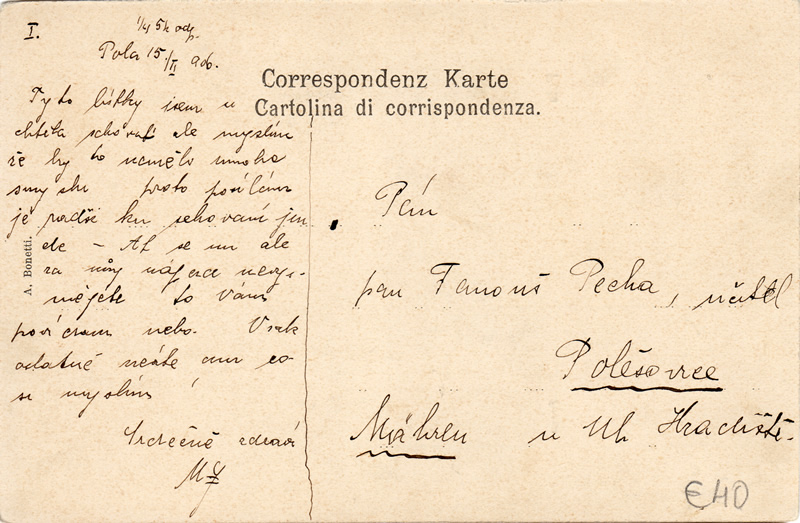 I.
1/4 5h odp.
Pola 15./II 906.
Correspondenz Karte
Cartolina di corrispondenza.
Tyto lístky jsem u
chtěla schovat ale myslím
že by to nemělo mnoho
smyslu proto posílám
je radši ku schovaní jen
de – Ať se mu ale
za můj nápad nevy-
smějete to Vám
povídám nebo. Však
odatně neste am co
si myslím!
Srdečně zdraví
A. Bonetti.
Pán
pan Fanouš Pecha, učitel
Polešovice
Mähren u Uh Hradiště.
€40